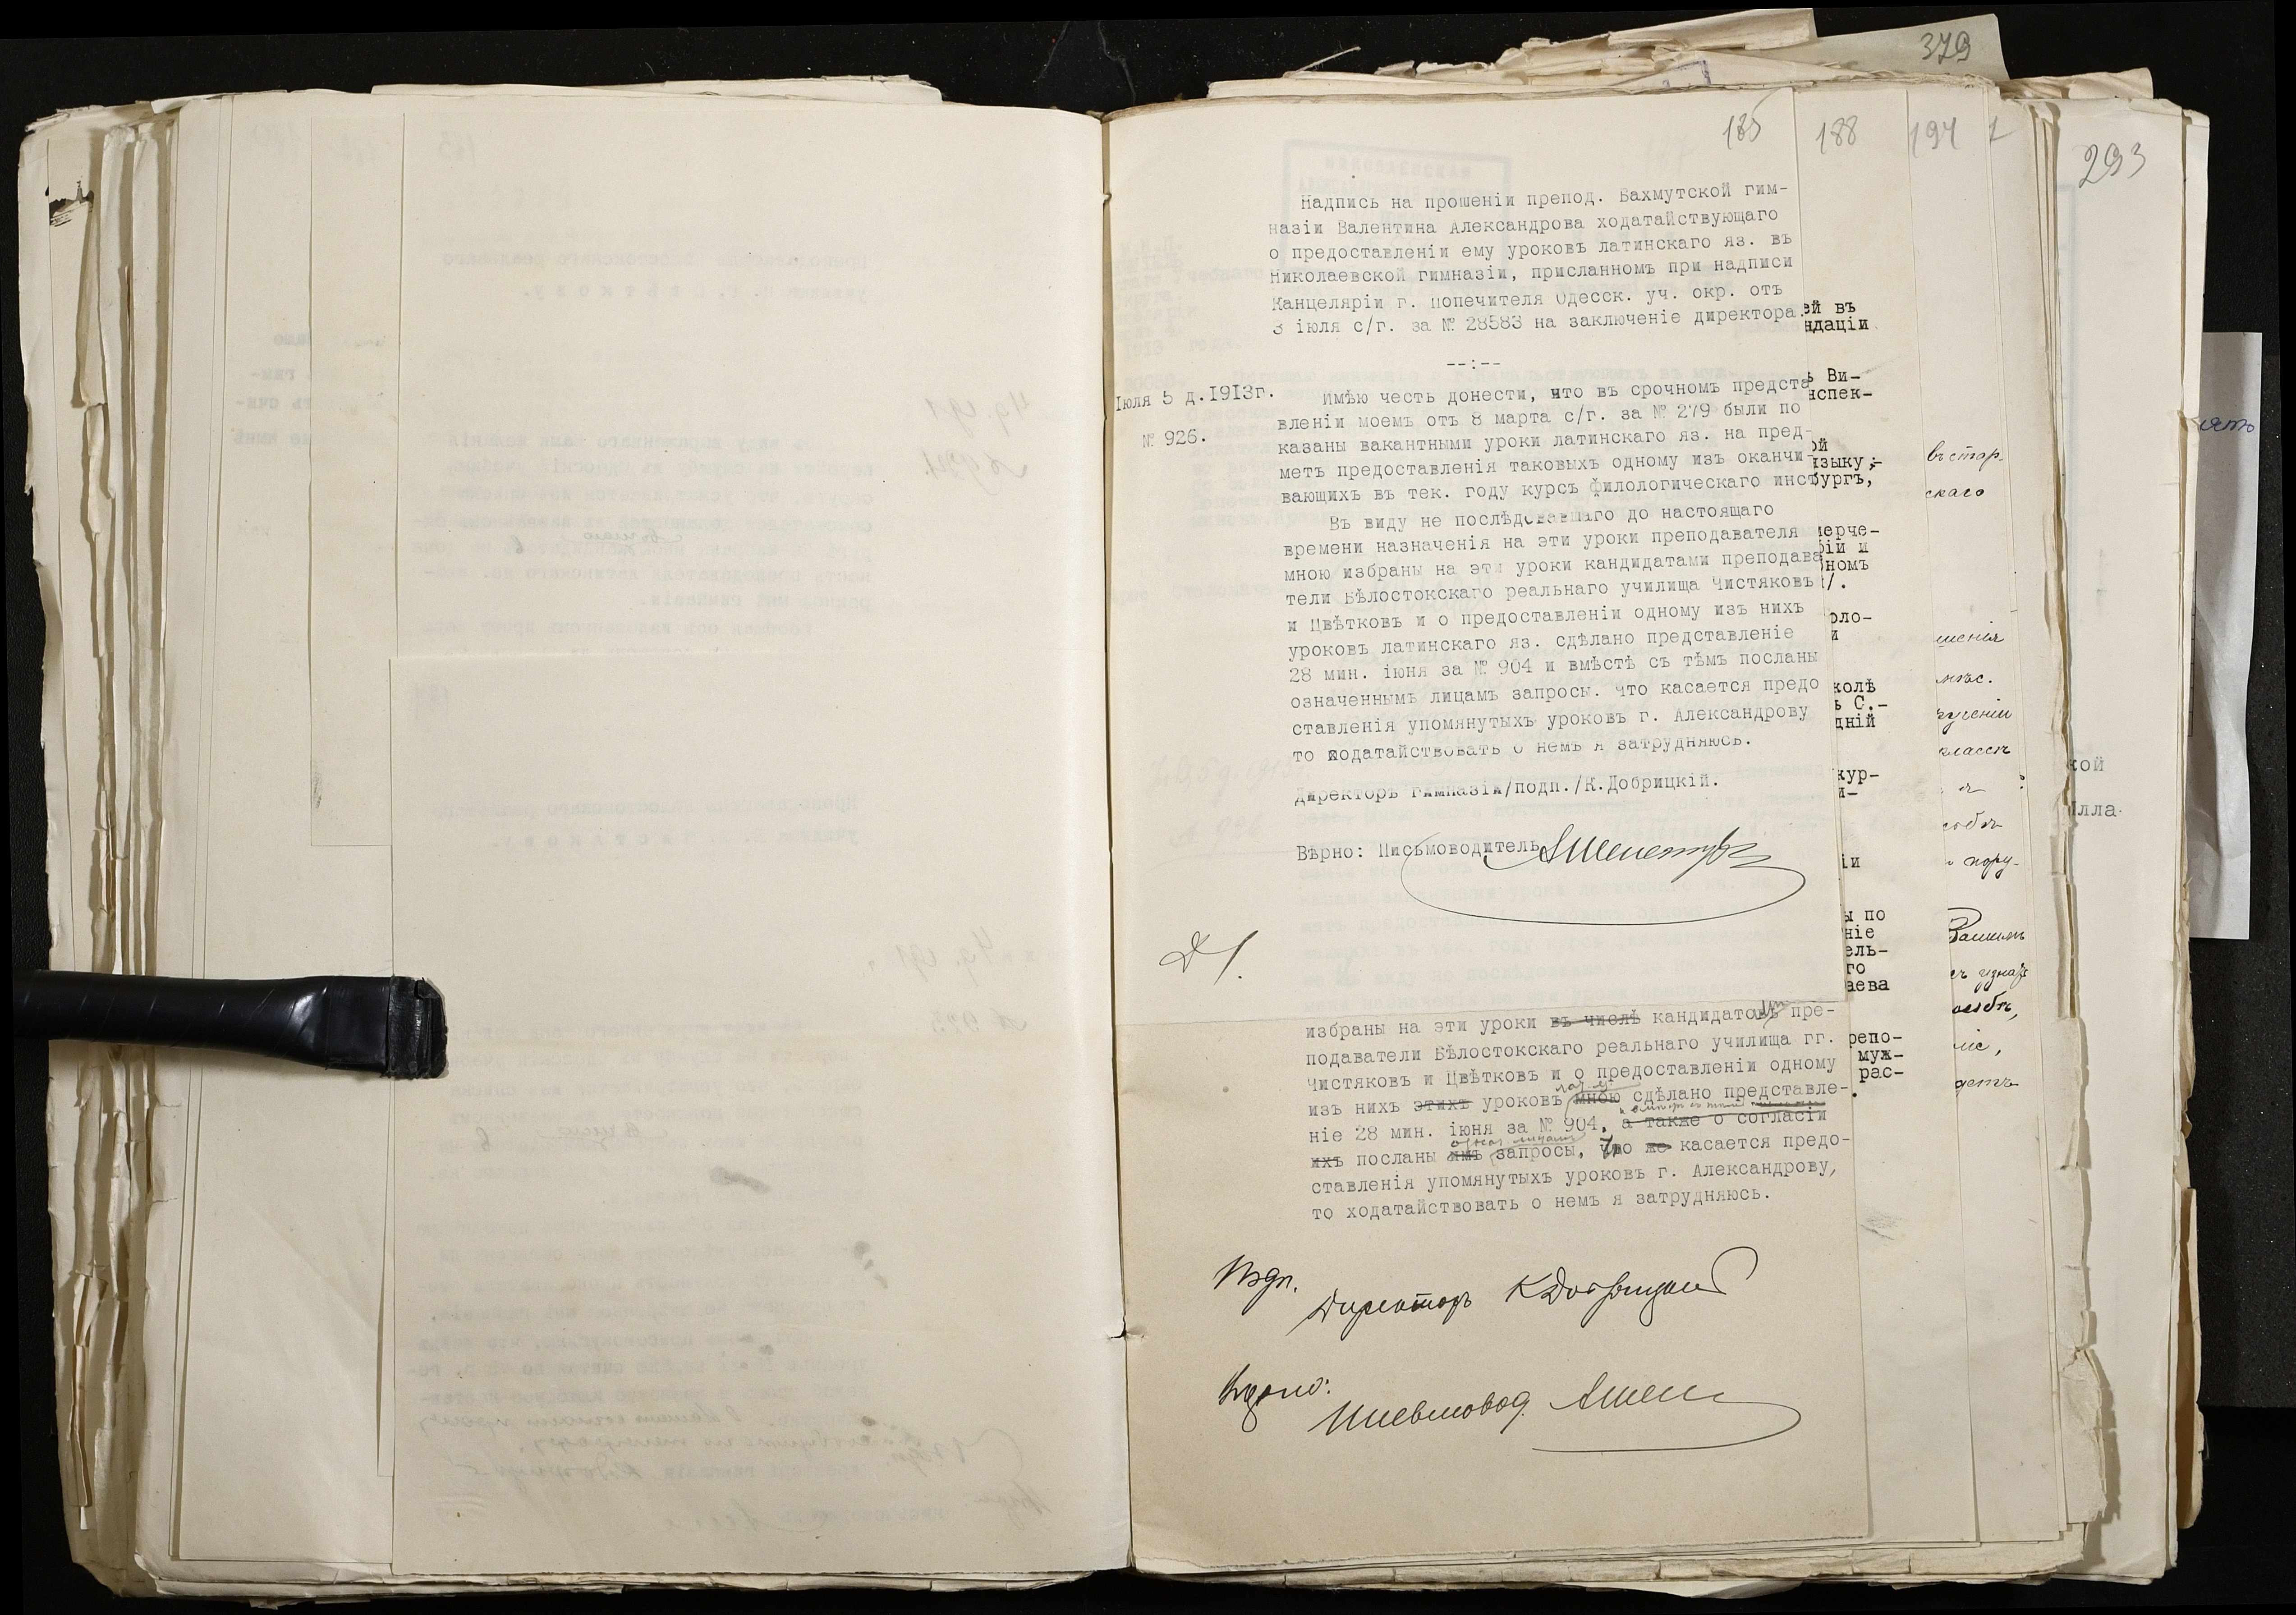 379
185
188
194
293
Надпись на прошеніи препод. Бахмутской гим-
назіи Валентина Александрова ходатайствующаго
о предоставленіи ему уроковъ латинскаго яз. въ
Николаевской гимназіи, присланномъ при надписи
Канцеляріи г. Попечителя Одесск. уч. окр. отъ
3 іюля с/г. за № 28583 на заключеніе директора.
--:--
Іюля 5 д. 1913г.
№ 926.
Имѣю честь донести, что въ срочномъ предста
вленіи моемъ отъ 8 марта с/г. за № 279 были по
казаны вакантными уроки латинскаго яз. на пред-
метъ предоставленія таковыхъ одному изъ оканчи-
вающихъ въ тек. году курсъ филологическаго инст
Въ виду не послѣдовавшаго до настоящаго
времени назначенія на эти уроки преподавателя
мною избраны на эти уроки кандидатами преподава
тели Бѣлостокскаго реальнаго училища Чистяковъ
и Цвѣтковъ и о предоставленіи одному изъ нихъ
уроковъ латинскаго яз. сдѣлано представленіе
28 мин. іюня за № 904 и вмѣстѣ съ тѣмъ посланы
означеннымъ лицамъ запросы. Что касается предо
ставленія упомянутыхъ уроковъ г. Александрову
то ходатайствовать о немъ я затрудняюсь.
Директоръ гимназіи/подп./К.Добрицкій.
Вѣрно: Письмоводитель
избраны на эти уроки въ числѣ кандидатовъ пре-
подаватели Бѣлостокскаго реальнаго училища гг.
Чистяковъ и Цвѣтковъ и о предоставленіи одному
изъ нихъ этихъ уроковъ мною сдѣлано представле-
ніе 28 мин. іюня за № 904, а также о согласіи
ихъ посланы имъ запросы, Что же касается предо-
ставленія упомянутыхъ уроковъ г. Александрову,
то ходатайствовать о немъ я затрудняюсь.
Подп.
Директоръ КДобрицкій
Вѣрно:
Письмовод.
ей въ
ндаціи
ъ Ви-
нспек-
ой
языку;-
бургъ,
мерче-
ріи и
номъ
/.
оло-
и
колѣ
ъ С.-
дній
кур-
и-
іи
ы по
ніе
ель-
го
аева
репо-
муж-
рас-
въ стар.
скаго
шенія
классъ
кой
лла